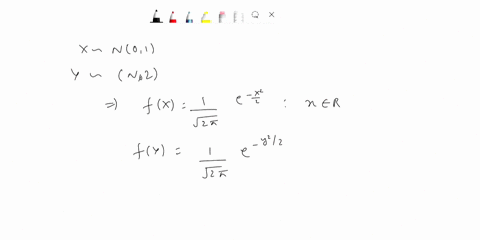 X ~ N(0,1)
Y ~ (N,2)
⇒ f(X) = 1/√2π e^{-x²/2} : x ∈ R
f(Y) = 1/√2π e^{-y²/2}